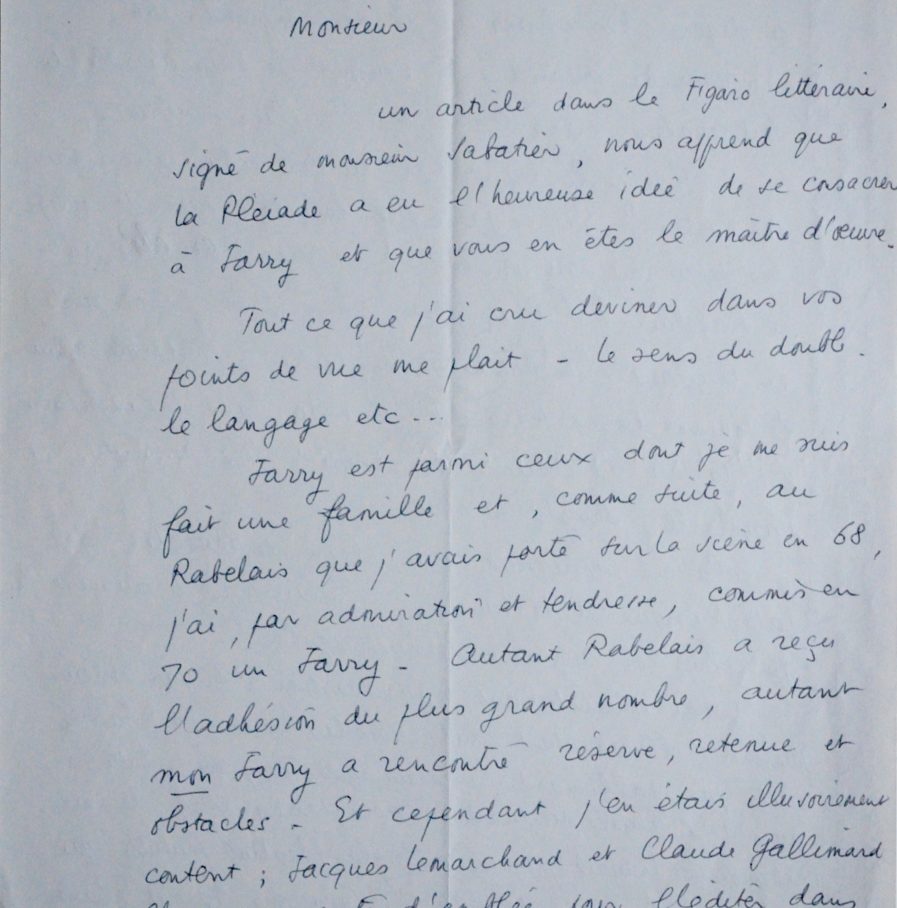 Monsieur
un article dans le Figaro littéraire,
signé de monsieur Sabatier, nous apprend que
la Pléiade a eu l'heureuse idée de se consacrer
à Jarry et que vous en êtes le maître d'œuvre.
Tout ce que j'ai cru deviner dans vos
points de vue me plait - le sens du double.
le langage etc...
Jarry est parmi ceux dont je me suis
fait une famille et, comme suite, au
Rabelais que j'avais porté sur la scène en 68,
j'ai, par admiration et tendresse, commis en
70 un Jarry - Autant Rabelais a reçu
l'adhésion du plus grand nombre, autant
mon Jarry a rencontré réserve, retenue et
obstacles - Et cependant j'en étais illusoirement
content ; Jacques Lemarchand et Claude Gallimard
d'emblée pour l'éditer dans